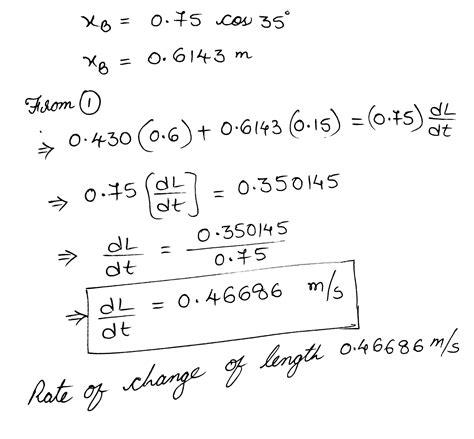 x_B = 0.75 cos 35°
x_B = 0.6143 m
From ①
⇒ 0.430 (0.6) + 0.6143 (0.15) = (0.75) dL/dt
⇒ 0.75 [dL/dt] = 0.350145
⇒ dL/dt = 0.350145/0.75
⇒ dL/dt = 0.46686 m/s
Rate of change of length 0.46686 m/s